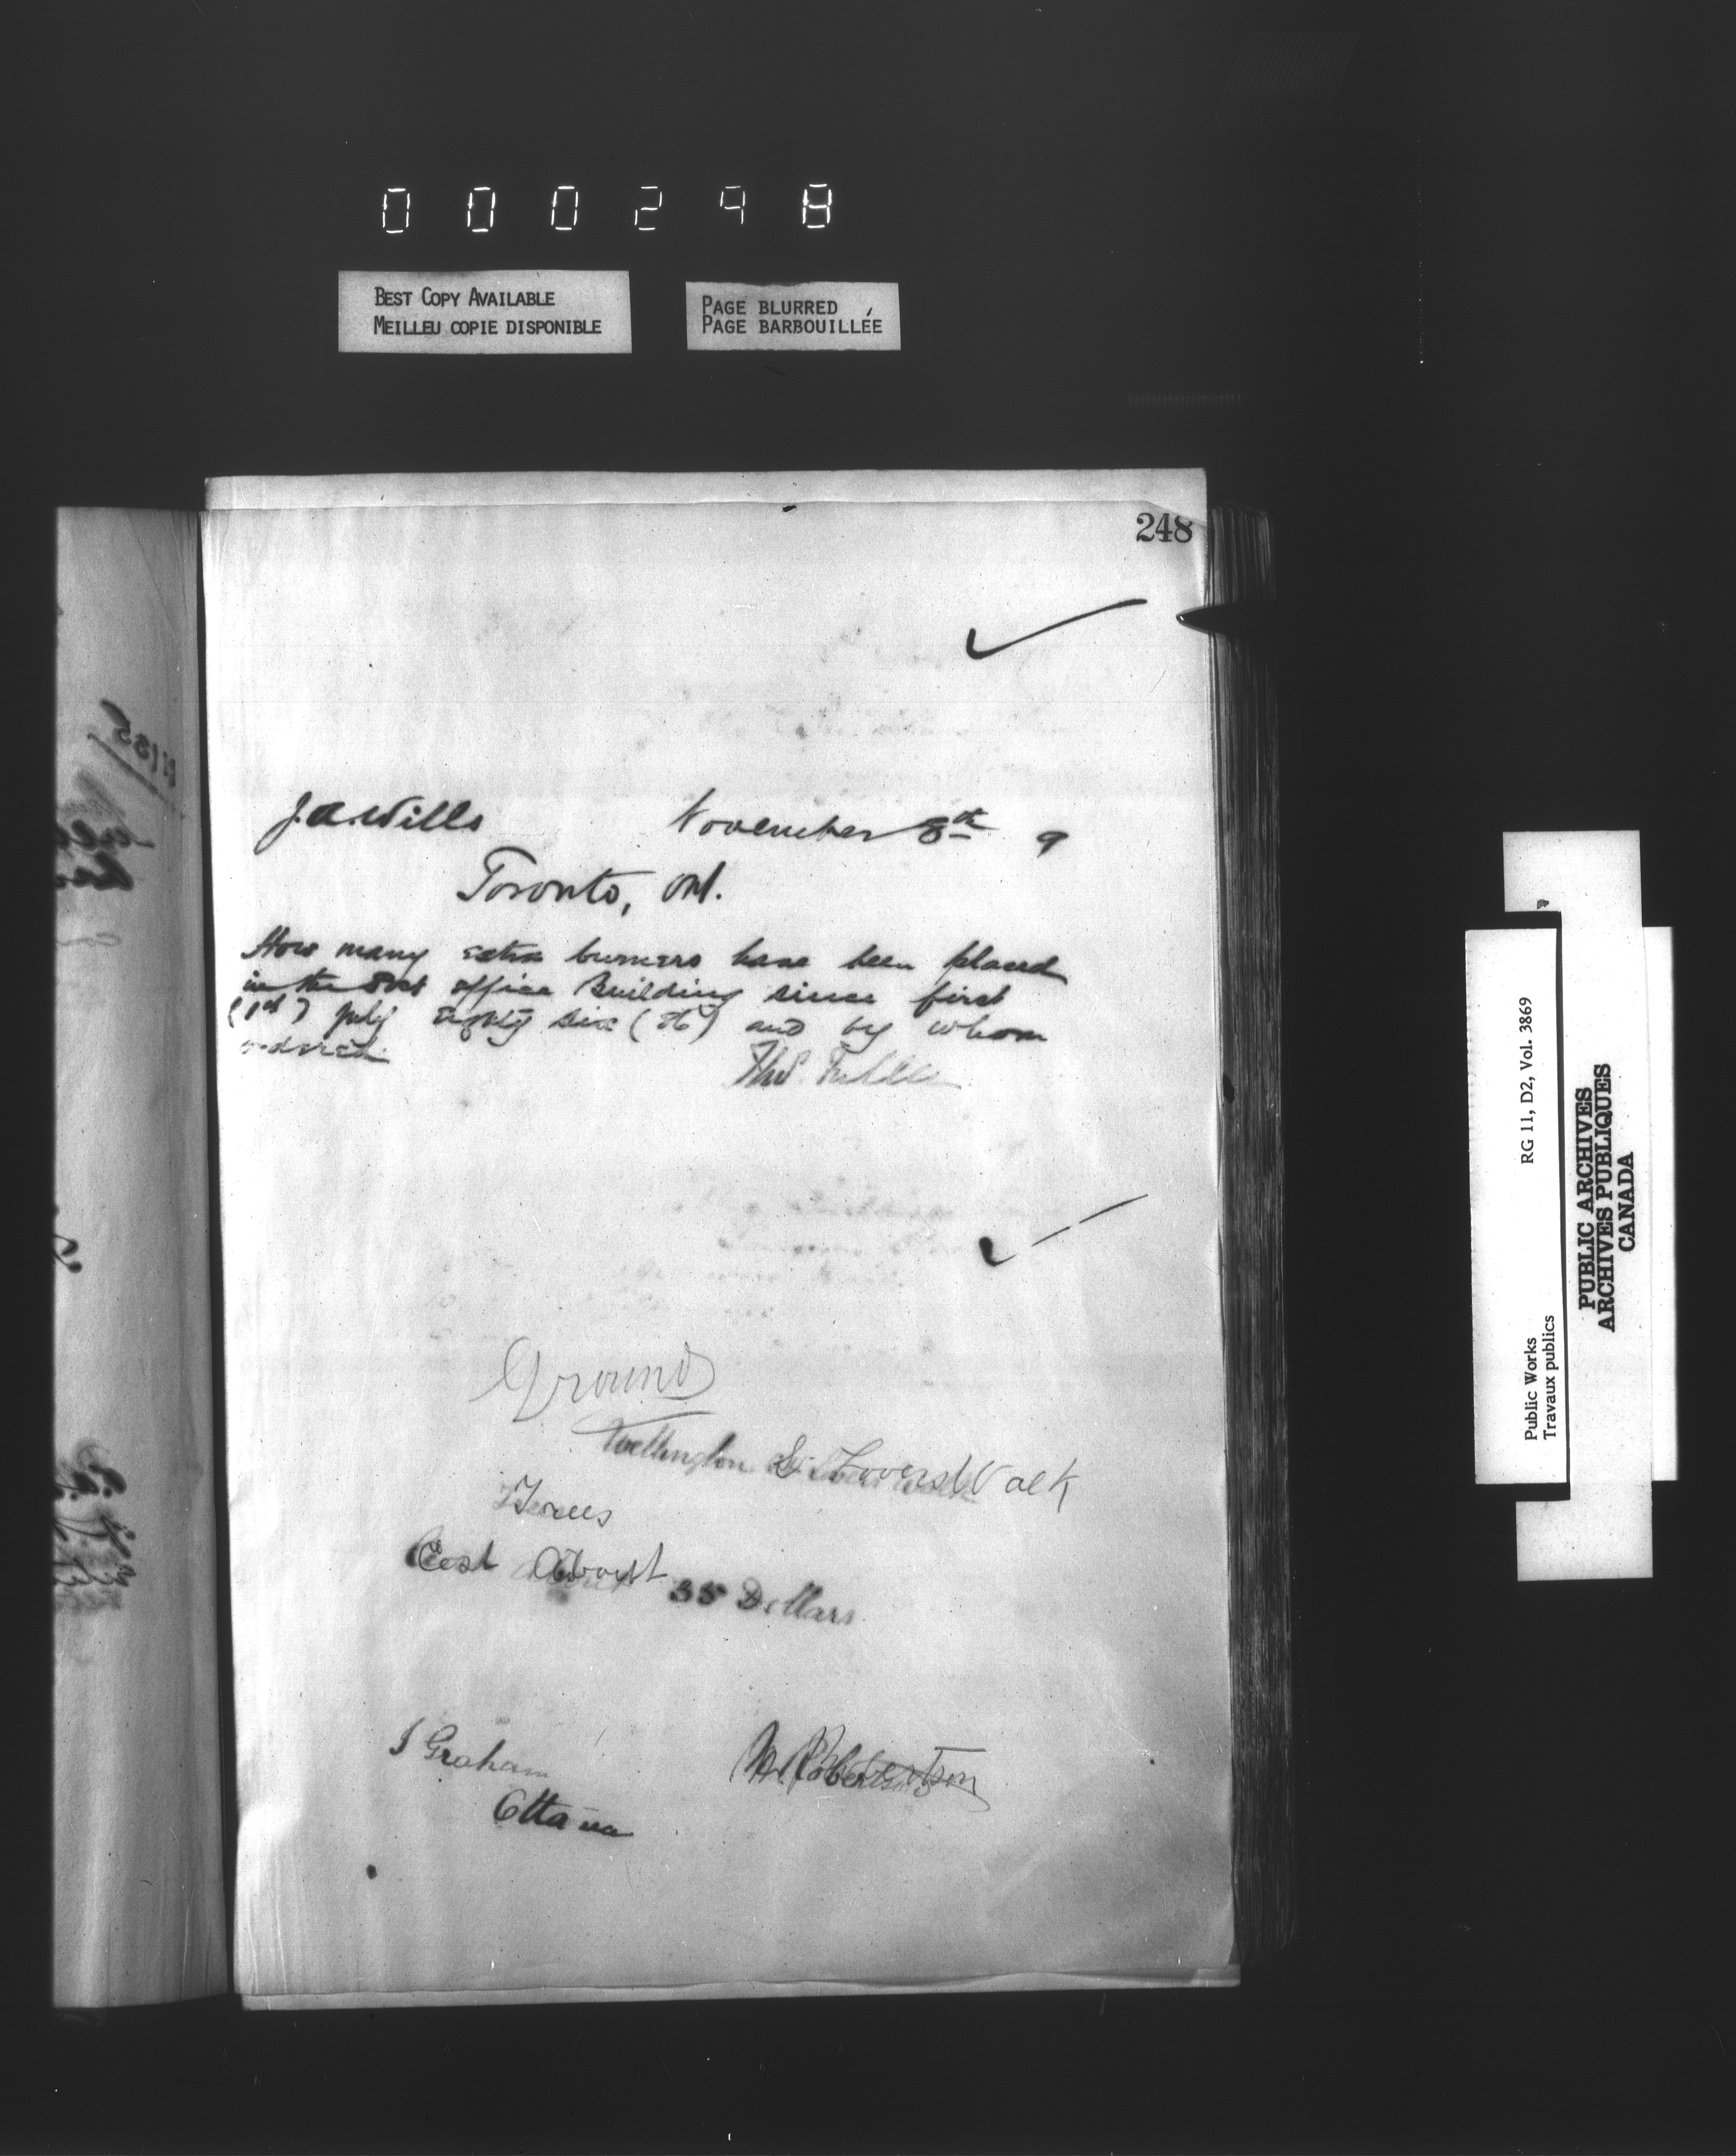 000248
BEST COPY AVAILABLE
MEILLEU COPIE DISPONIBLE
PAGE BLURRED
PAGE BARBOUILLÉE
248
J.A. Wills November 8th 9
Toronto, Ont.
How many extra burners have been placed
in the Post office Building since first
(1st) July Eighty six (86) and by whom
ordered.
Thos. Fuller
Ground
Wellington St Lovers Walk
Trees
Cost About 35 Dollars
J Graham
Ottawa
Robertson
Public Works RG 11, D2, Vol. 3869
Travaux publics
PUBLIC ARCHIVES
ARCHIVES PUBLIQUES
CANADA